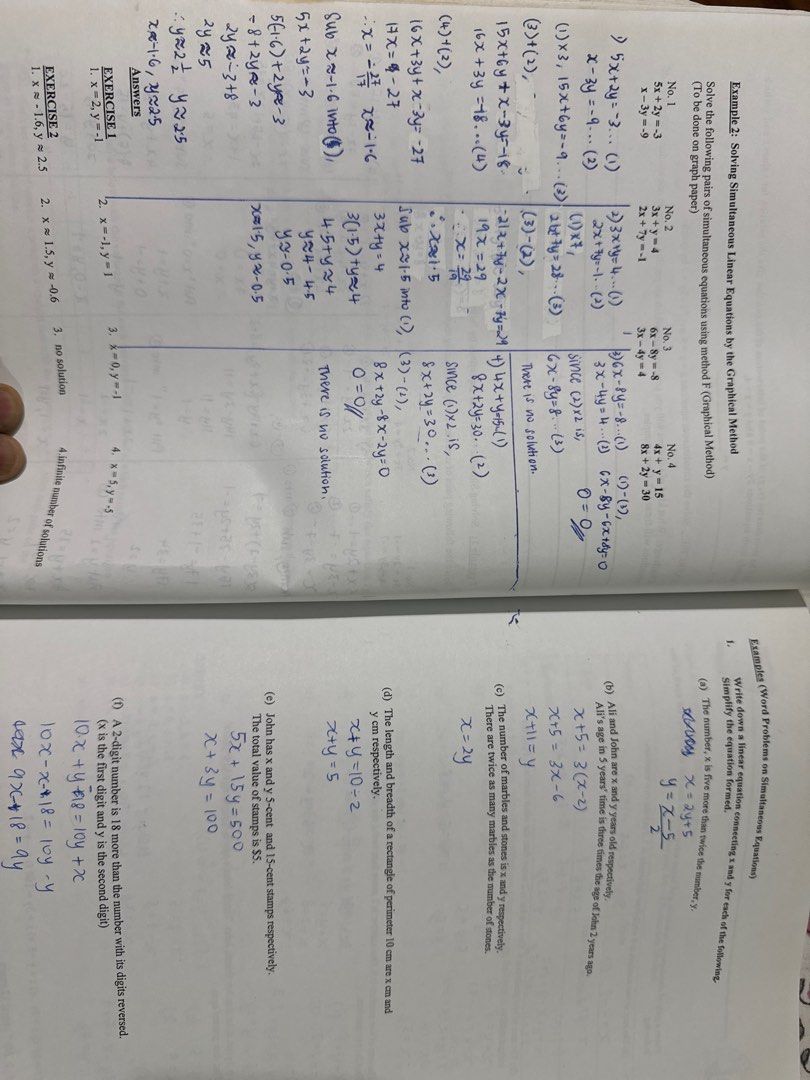 Example 2: Solving Simultaneous Linear Equations by the Graphical Method
Solve the following pairs of simultaneous equations using method F (Graphical Method)
(To be done on graph paper)
No. 1
5x + 2y = -3
x – 3y = -9
No. 2
3x + y = 4
2x + 7y = -1
No. 3
6x – 8y = -8
3x – 4y = 4
No. 4
4x + y = 15
8x + 2y = 30
1) 5x+2y=-3...(1)
x-3y=-9...(2)
(1)×3, 15x+6y=-9...(3)
(3)+(2),
15x+6y+x-3y=-18
16x+3y=-18...(4)
(4)+(2),
16x+3y+x-3y=-27
17x=-27
∴x=-27/17 x≈-1.6
Sub x≈-1.6 into (1),
5x+2y=-3
5(-1.6)+2y≈-3
-8+2y≈-3
2y≈-3+8
2y≈5
∴y≈2½ y≈2.5
x≈-1.6, y≈2.5
2) 3x+y=4...(1)
2x+7y=-1...(2)
(1)×7,
21x+7y=28...(3)
(3)-(2),
21x+7y-2x-7y=29
19x=29
∴x=29/19
∴x≈1.5
Sub x≈1.5 into (1),
3x+y=4
3(1.5)+y≈4
4.5+y≈4
y≈4-4.5
y≈-0.5
x≈1.5, y≈-0.5
3) 6x-8y=-8...(1)
3x-4y=4...(2)
Since (2)×2 is,
6x-8y=8...(3)
There is no solution.
(1)-(3),
6x-8y-6x+8y=0
0=0
4) 4x+y=15...(1)
8x+2y=30...(2)
Since (1)×2 is,
8x+2y=30...(3)
(3)-(2),
8x+2y-8x-2y=0
0=0
There is no solution.
Answers
EXERCISE 1
1. x = 2, y = -1
2. x = -1, y = 1
3. x = 0, y = -1
4. x = 5, y = -5
EXERCISE 2
1. x ≈ - 1.6, y ≈ 2.5
2. x ≈ 1.5, y ≈ -0.6
3. no solution
4.infinite number of solutions
Examples (Word Problems on Simultaneous Equations)
1. Write down a linear equation connecting x and y for each of the following.
Simplify the equation formed.
(a) The number, x is five more than twice the number, y.
x = 2y+5
y = x-5/2
(b) Ali and John are x and y years old respectively.
Ali's age in 5 years' time is three times the age of John 2 years ago.
x+5 = 3(x-2)
x+5 = 3x-6
x+11 = y
(c) The number of marbles and stones is x and y respectively.
There are twice as many marbles as the number of stones.
x = 2y
(d) The length and breadth of a rectangle of perimeter 10 cm are x cm and
y cm respectively.
x+y = 10÷2
x+y = 5
(e) John has x and y 5-cent and 15-cent stamps respectively.
The total value of stamps is $5.
5x + 15y = 500
x + 3y = 100
(f) A 2-digit number is 18 more than the number with its digits reversed.
(x is the first digit and y is the second digit)
10x + y - 18 = 10y + x
10x - x + 18 = 10y - y
9x + 18 = 9y